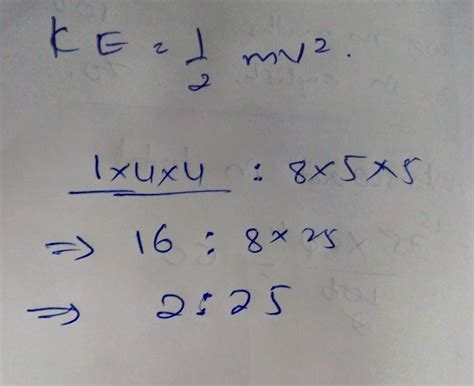 KE = 1/2 mv².
1×4×4 : 8×5×5
⇒ 16 : 8×25
⇒ 2:25